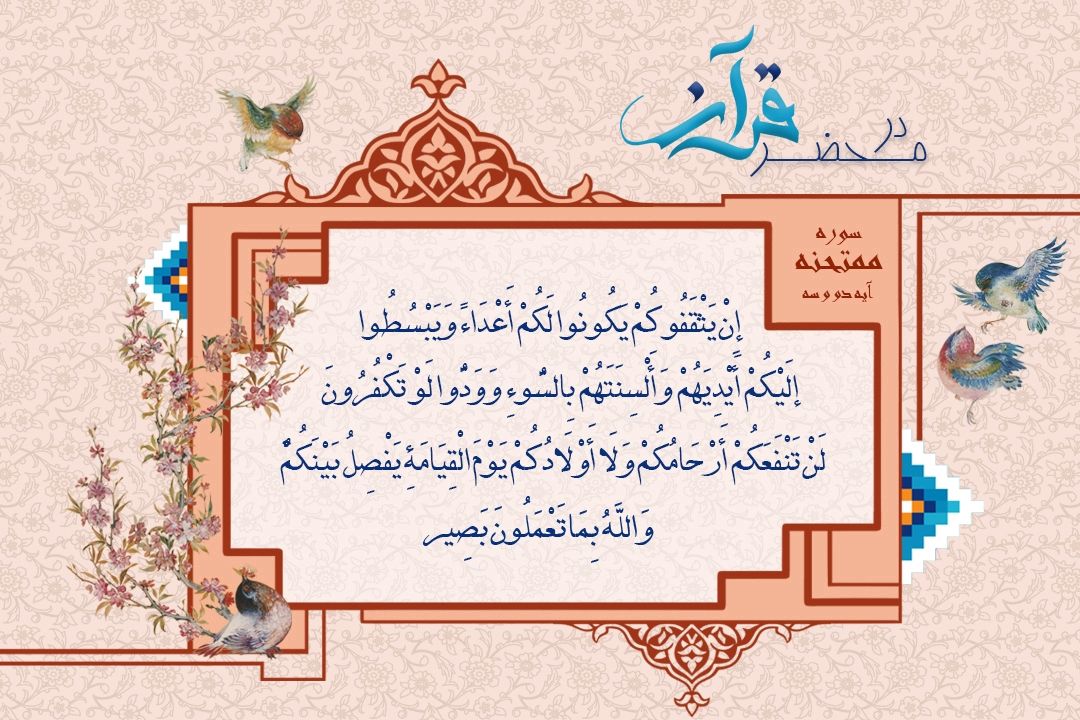 در محضر قرآن
سوره
ممتحنه
آیه دو و سه
إِنْ يَثْقَفُوكُمْ يَكُونُوا لَكُمْ أَعْدَاءً وَيَبْسُطُوا
إِلَيْكُمْ أَيْدِيَهُمْ وَأَلْسِنَتَهُمْ بِالسُّوءِ وَوَدُّوا لَوْ تَكْفُرُونَ
لَنْ تَنْفَعَكُمْ أَرْحَامُكُمْ وَلَا أَوْلَادُكُمْ يَوْمَ الْقِيَامَةِ يَفْصِلُ بَيْنَكُمْ
وَاللَّهُ بِمَا تَعْمَلُونَ بَصِير